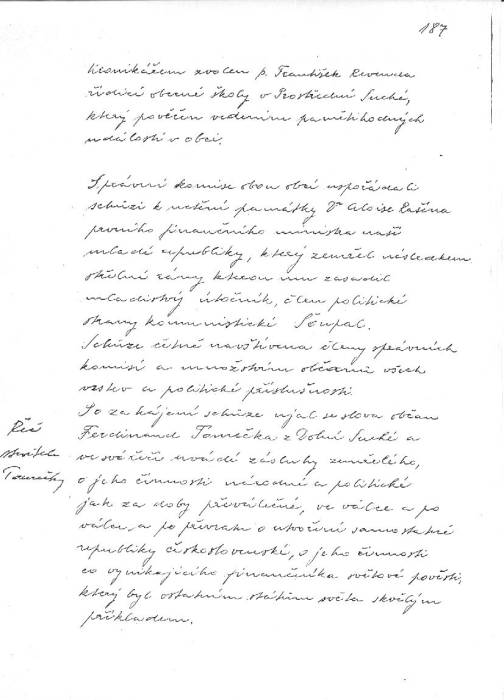 187
kronikářem zvolen p. František Revenda
řídící obecné školy v Prostřední Suché,
který pověřen vedením pamětihodných
událostí v obci.
Správní komise obou obcí uspořádali
schůzi k uctění památky Dr Aloise Rašína
prvního finančního ministra naší
mladé republiky, který zemřel následkem
střelné rány kterou mu zasadil
mladistvý útočník, člen politické
strany komunistické Šoupal.
Schůze četně navštívena členy správních
komisí a množstvím občanů všech
vrstev a politické příslušnosti.
Po zahájení schůze ujal se slova občan
Ferdinand Tomečka z Dolní Suché a
ve svářeči uvádí zásluhy zemřelého,
o jeho činnosti národní a politické
jak za doby předválečné, ve válce a po
válce, a po převratu o utvoření samostatné
republiky československé, o jeho činnosti
co vynikajícího finančníka světové pověsti,
který byl ostatním státům světa skvělým
příkladem.
Řeč
Tomečky